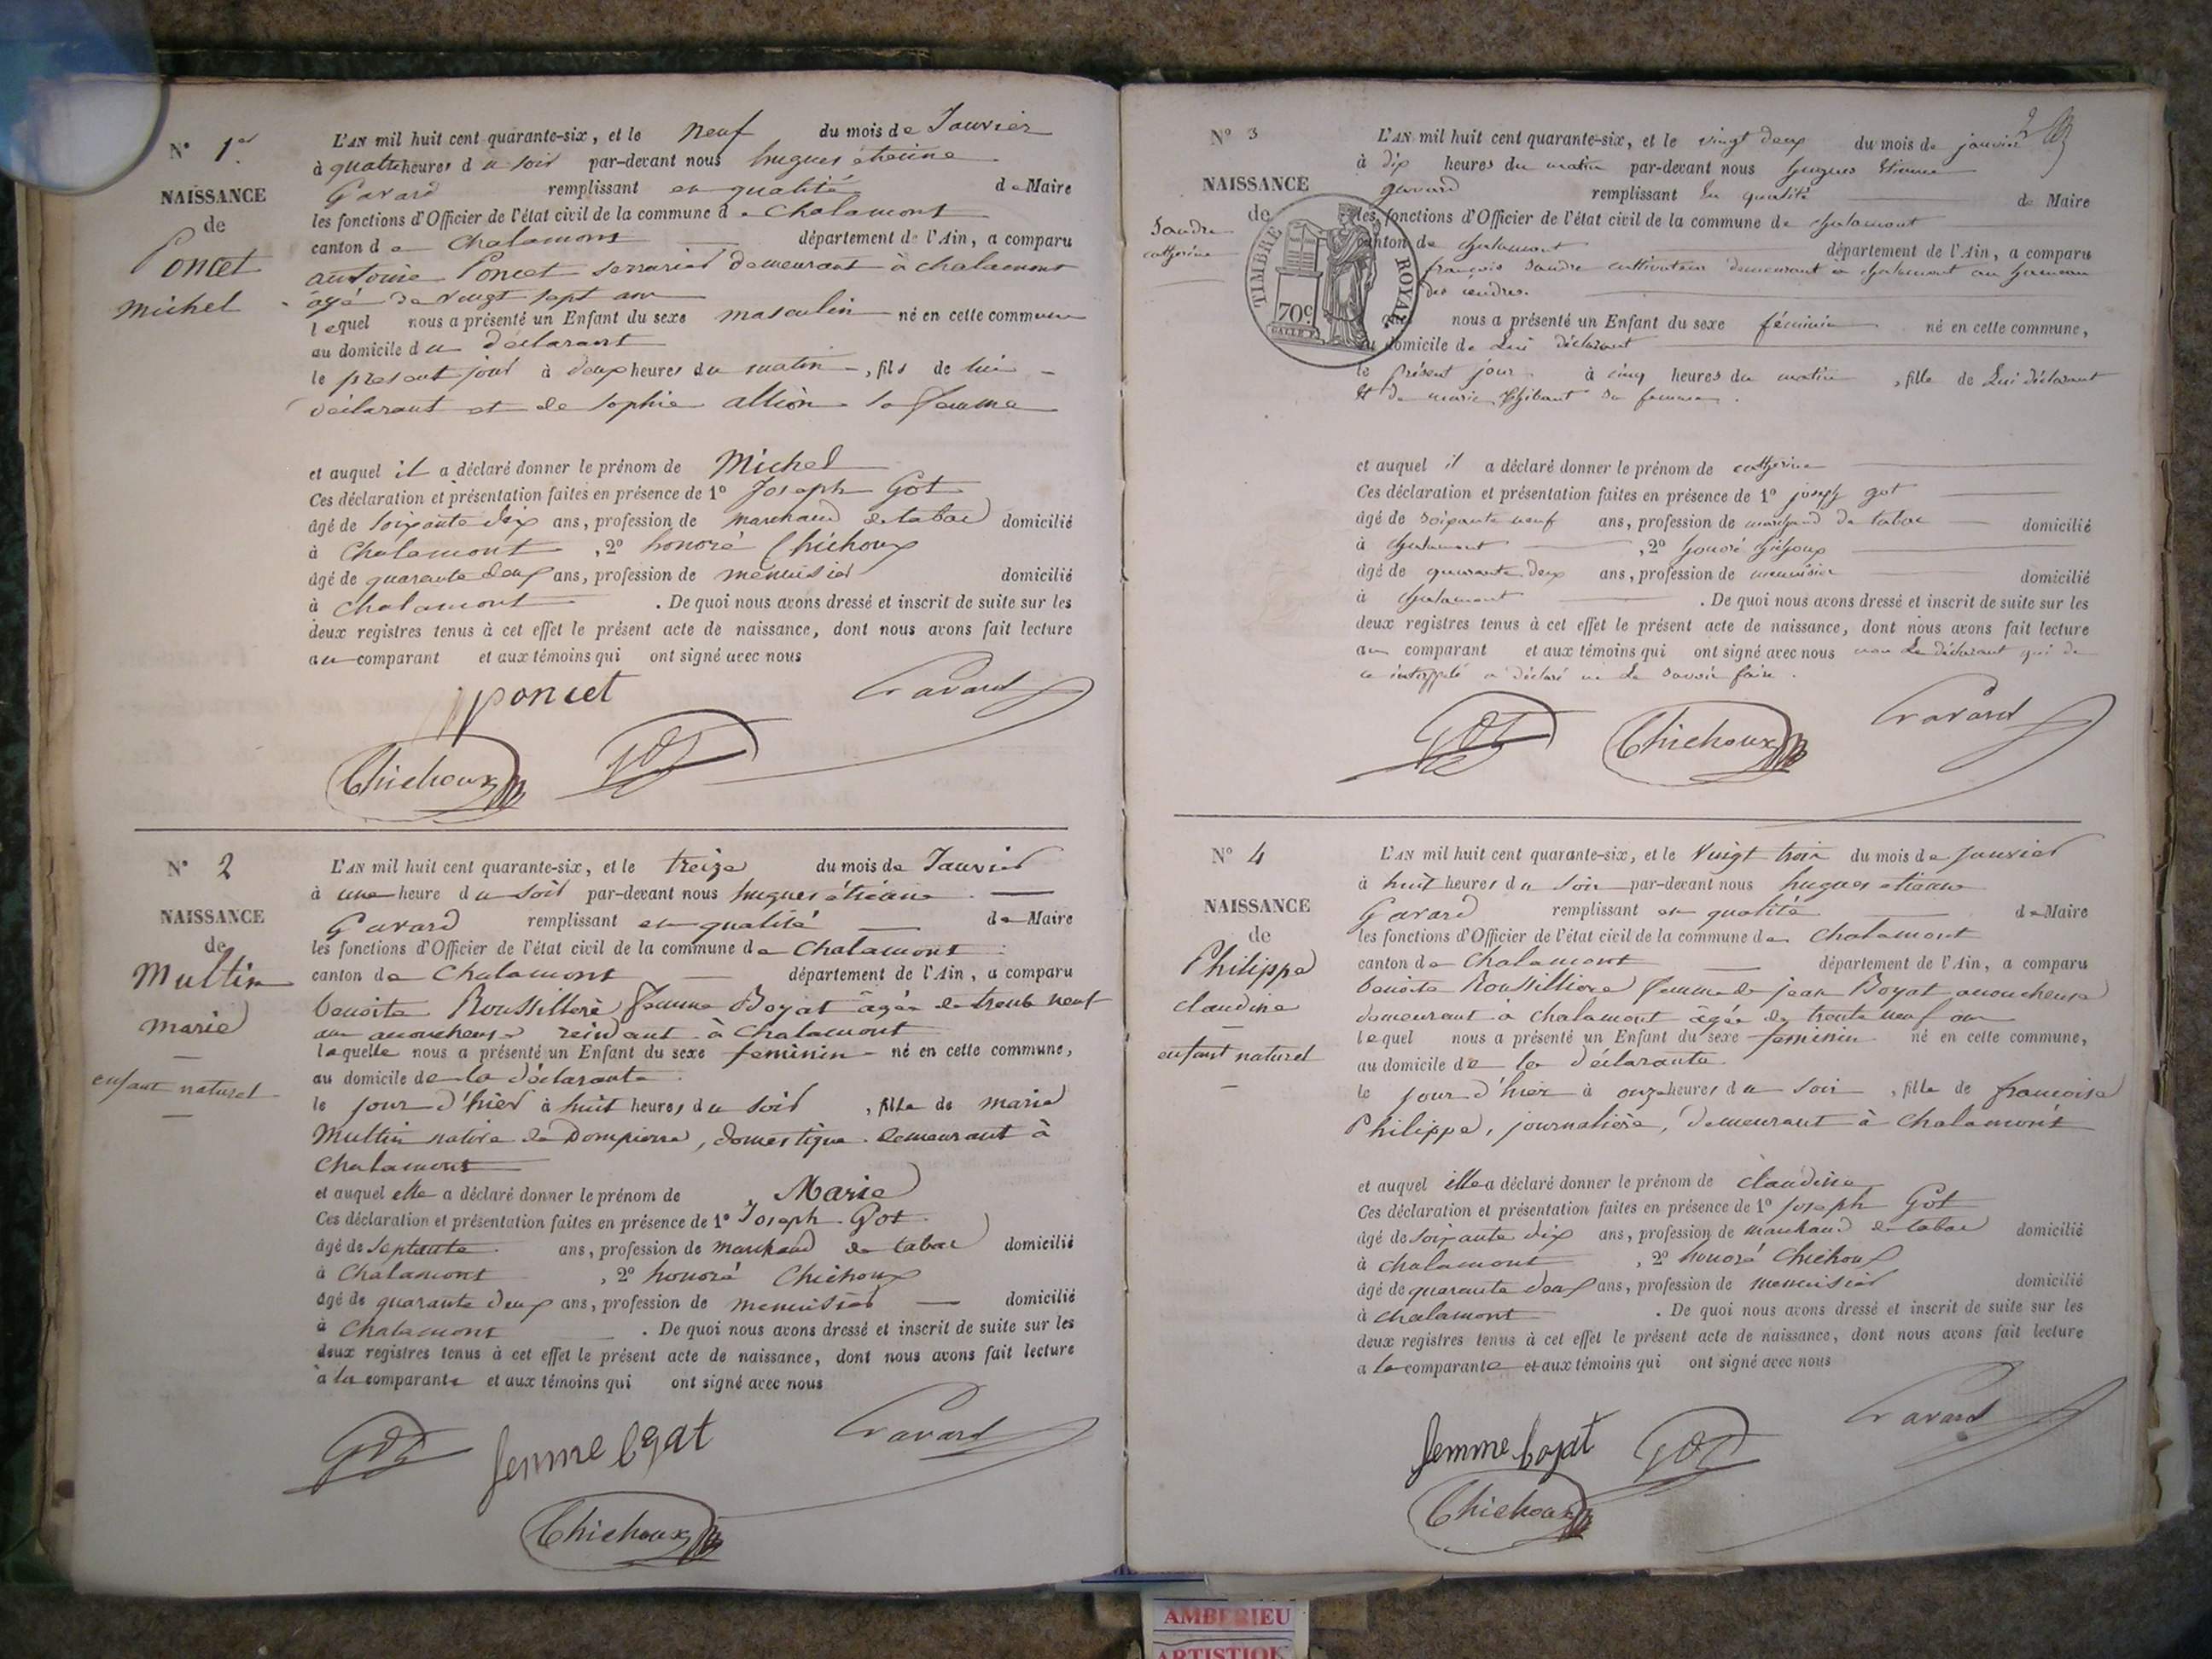 N° 1er
NAISSANCE
de
Poncet
Michel
L'AN mil huit cent quarante-six, et le neuf du mois de Janvier
à quatre heures du soir par-devant nous hugues étienne
Gavard remplissant en qualité de Maire
les fonctions d'Officier de l'état civil de la commune de Chalamont
canton de Chalamont département de l'Ain, a comparu
antoine Poncet serrurier demeurant à chalamont
agé de vingt sept ans
lequel nous a présenté un Enfant du sexe masculin né en cette commune
au domicile du déclarant
le présent jour à deux heures du matin, fils de lui
déclarant et de Sophie allion sa femme
et auquel il a déclaré donner le prénom de Michel
Ces déclaration et présentation faites en présence de 1° Joseph Got
âgé de soixante dix ans, profession de marchand de tabac domicilié
à Chalamont, 2° honoré Chichoux
âgé de quarante deux ans, profession de menuisier domicilié
à Chalamont. De quoi nous avons dressé et inscrit de suite sur les
deux registres tenus à cet effet le présent acte de naissance, dont nous avons fait lecture
au comparant et aux témoins qui ont signé avec nous
poncet Gavard
Chichoux Got
N° 2
NAISSANCE
de
Multin
Marie
enfant naturel
L'AN mil huit cent quarante-six, et le treize du mois de Janvier
à une heure du soir par-devant nous hugues étienne
Gavard remplissant en qualité de Maire
les fonctions d'Officier de l'état civil de la commune de Chalamont
canton de Chalamont département de l'Ain, a comparu
benoite Roussillere femme Boyat agée de trente neuf
ans accoucheuse residant à Chalamont
laquelle nous a présenté un Enfant du sexe feminin né en cette commune,
au domicile de la déclarante
le jour d'hier à huit heures du soir, fille de marie
Multin native de Dompierre, domestique demeurant à
Chalamont
et auquel elle a déclaré donner le prénom de Marie
Ces déclaration et présentation faites en présence de 1° Joseph Got
âgé de septante ans, profession de marchand de tabac domicilié
à Chalamont, 2° honoré Chichoux
âgé de quarante deux ans, profession de menuisier domicilié
à Chalamont. De quoi nous avons dressé et inscrit de suite sur les
deux registres tenus à cet effet le présent acte de naissance, dont nous avons fait lecture
à la comparante et aux témoins qui ont signé avec nous
Got femme boyat Gavard
Chichoux
N° 3
NAISSANCE
de
Sandre
catherine
TIMBRE ROYAL
70c
L'AN mil huit cent quarante-six, et le vingt deux du mois de janvier
à dix heures du matin par-devant nous hugues Etienne
gavard remplissant en qualité de Maire
les fonctions d'Officier de l'état civil de la commune de chalamont
canton de chalamont département de l'Ain, a comparu
françois Sandre cultivateur demeurant a chalamont au hameau
des
quel nous a présenté un Enfant du sexe féminin né en cette commune,
au domicile de Lui déclarant
le présent jour à cinq heures du matin, fille de Lui déclarant
Et de marie thibaut sa femme.
et auquel il a déclaré donner le prénom de catherine
Ces déclaration et présentation faites en présence de 1° joseph got
âgé de soixante neuf ans, profession de marchand de tabac domicilié
à chalamont, 2° honoré chichoux
âgé de quarante deux ans, profession de menuisier domicilié
à chalamont. De quoi nous avons dressé et inscrit de suite sur les
deux registres tenus à cet effet le présent acte de naissance, dont nous avons fait lecture
au comparant et aux témoins qui ont signé avec nous non Le déclarant qui de
ce interpellé a déclaré ne Le savoir faire.
Got Chichoux Gavard
N° 4
NAISSANCE
de
Philippe
claudine
enfant naturel
L'AN mil huit cent quarante-six, et le Vingt trois du mois de janvier
à huit heures du soir par-devant nous hugues étienne
Gavard remplissant en qualité de Maire
les fonctions d'Officier de l'état civil de la commune de Chalamont
canton de Chalamont département de l'Ain, a comparu
benoite Roussilliere femme de jean Boyat accoucheuse
demeurant à chalamont agée de trente neuf ans
lequel nous a présenté un Enfant du sexe feminin né en cette commune,
au domicile de la déclarante
le jour d'hier à onze heures du soir, fille de francoise
Philippe, journalière, demeurant à Chalamont
et auquel elle a déclaré donner le prénom de claudine
Ces déclaration et présentation faites en présence de 1° joseph Got
âgé de soixante dix ans, profession de marchand de tabac domicilié
à chalamont, 2° honoré Chichoux
âgé de quarante deux ans, profession de menuisier domicilié
à chalamont. De quoi nous avons dressé et inscrit de suite sur les
deux registres tenus à cet effet le présent acte de naissance, dont nous avons fait lecture
a la comparante et aux témoins qui ont signé avec nous
femme boyat Got Gavard
Chichoux
AMBERIEU